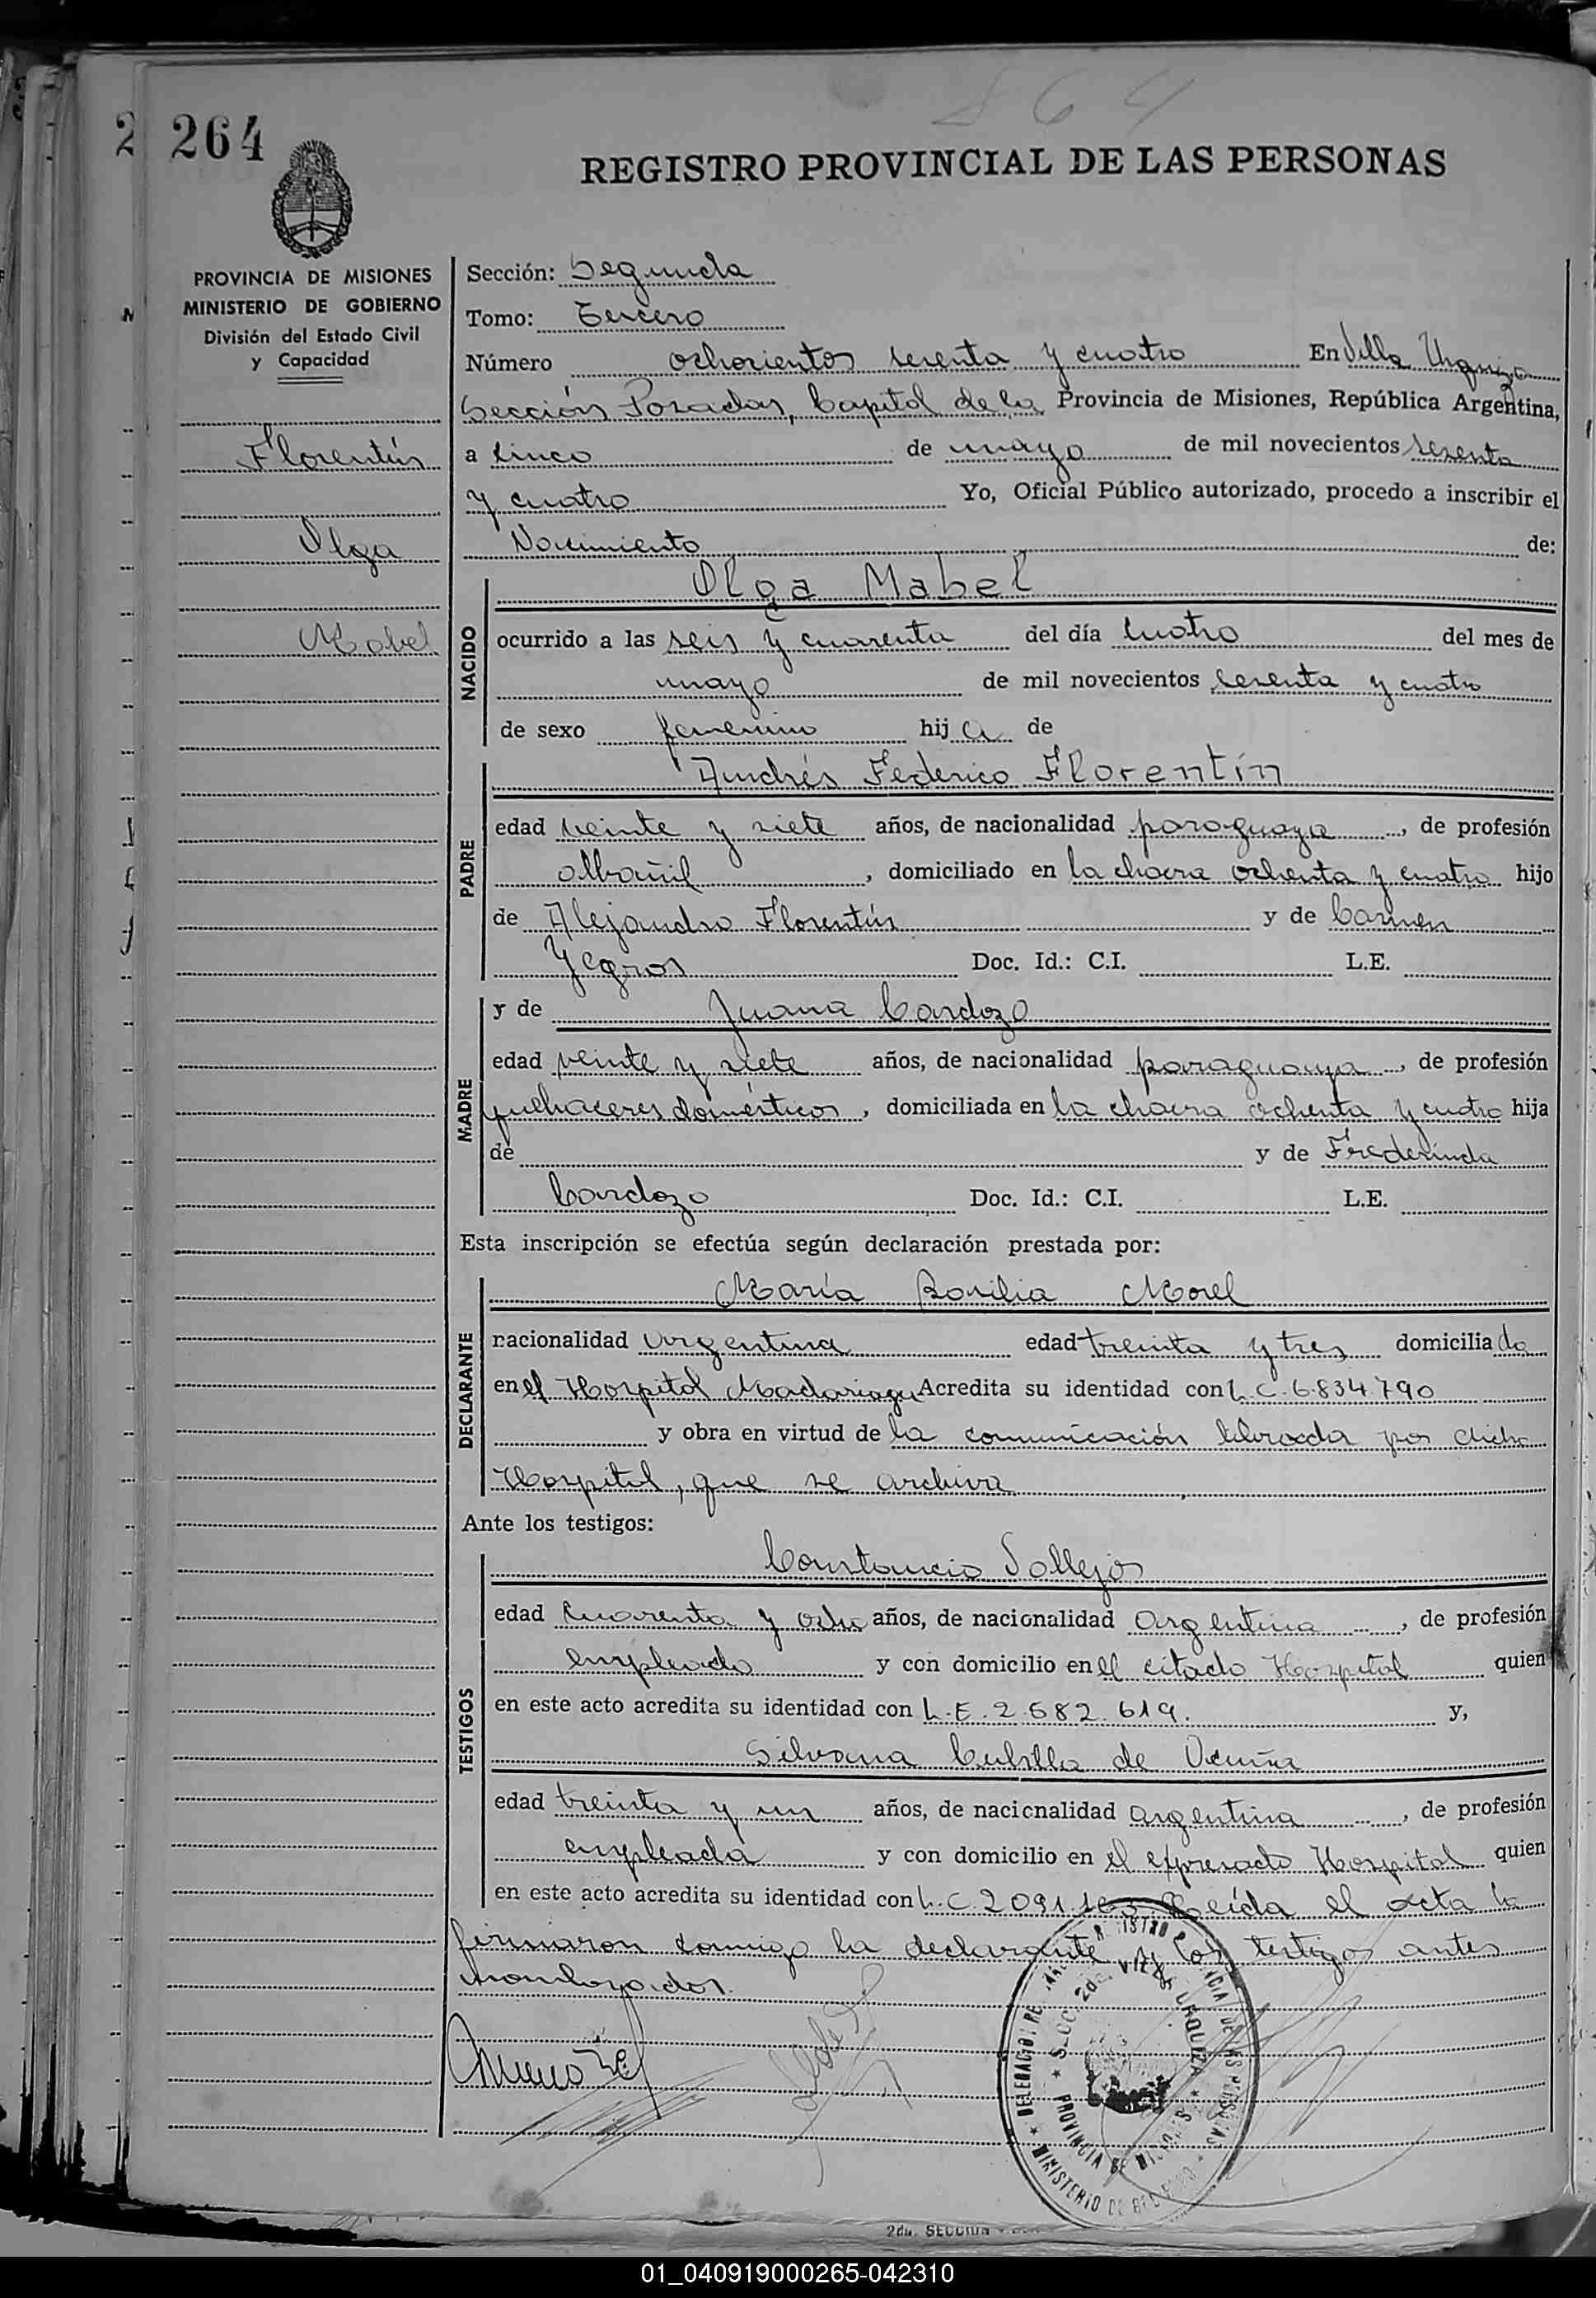 864
264
REGISTRO PROVINCIAL DE LAS PERSONAS
PROVINCIA DE MISIONES
MINISTERIO DE GOBIERNO
División del Estado Civil
y Capacidad
Florentín
Olga
Mabel
Sección: Segunda
Tomo: Tercero
Número ochocientos sesenta y cuatro En Villa Urquiza
Sección Posadas, Capital de la Provincia de Misiones, República Argentina,
a cinco de mayo de mil novecientos sesenta
y cuatro Yo, Oficial Público autorizado, procedo a inscribir el
Nacimiento de:
NACIDO
Olga Mabel
ocurrido a las seis y cuarenta del día cuatro del mes de
mayo de mil novecientos sesenta y cuatro
de sexo femenino hij a de
PADRE
Andrés Federico Florentín
edad veinte y siete años, de nacionalidad paraguaya, de profesión
albañil, domiciliado en la chacra ochenta y cuatro hijo
de Alejandro Florentín y de Carmen
Yegros Doc. Id.: C.I. L.E.
MADRE
y de Juana Cardozo
edad veinte y siete años, de nacionalidad paraguaya, de profesión
quehaceres domésticos, domiciliada en la chacra ochenta y cuatro hija
de y de Frederinda
Cardozo Doc. Id.: C.I. L.E.
Esta inscripción se efectúa según declaración prestada por:
DECLARANTE
María Basilia Morel
nacionalidad argentina edad treinta y tres domiciliada
en el Hospital Madariaga Acredita su identidad con L.C. 6.834.790
y obra en virtud de la comunicación librada por dicho
Hospital, que se archiva
Ante los testigos:
TESTIGOS
Constancio Vallejos
edad cuarenta y ocho años, de nacionalidad argentina, de profesión
empleado y con domicilio en el citado Hospital quien
en este acto acredita su identidad con L.E. 2.582.619. y,
Silvana Cubilla de Acuña
edad treinta y un años, de nacionalidad argentina, de profesión
empleada y con domicilio en el expresado Hospital quien
en este acto acredita su identidad con L.C. 2091.163 Leída el acta la
firmaron conmigo la declarante y los testigos antes
nombrados.
SECC. 2da. VILLA URQUIZA
PROVINCIA DE MISIONES
MINISTERIO DE GOBIERNO
2da. SECCION
01_040919000265-042310